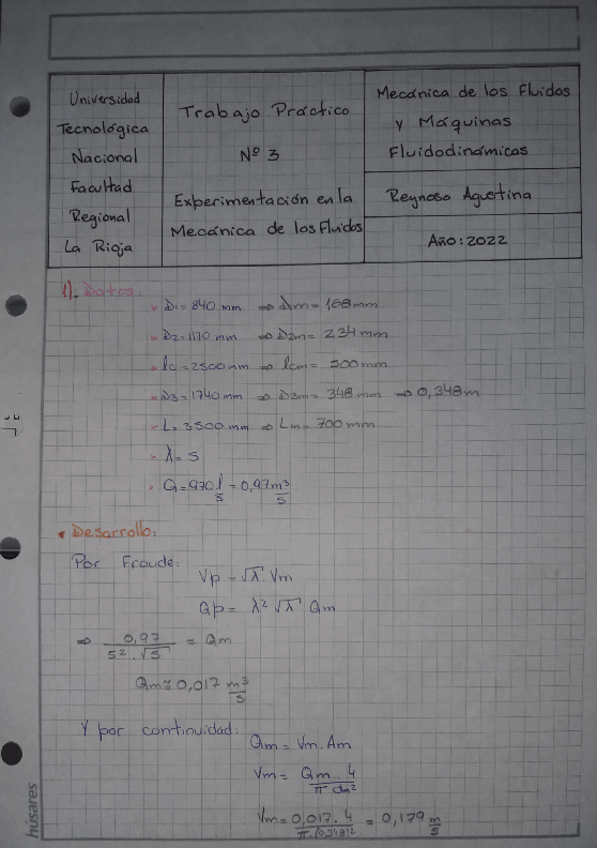 Universidad
Tecnológica
Nacional
Facultad
Regional
La Rioja
Trabajo Práctico
Nº 3
Experimentación en la
Mecánica de los Fluidos
Mecánica de los Fluidos
y Máquinas
Fluidodinámicas
Reynoso Agustina
Año: 2022
1)_ Datos:
D1 = 840 mm ⇒ D1m = 168 mm
D2 = 1170 mm ⇒ D2m = 234 mm
lc = 2500 mm ⇒ lcm = 500 mm
D3 = 1740 mm ⇒ D3m = 348 mm ⇒ 0,348 m
L = 3500 mm ⇒ Lm = 700 mm
λ = 5
G = 970 l/s = 0,97 m³/s
Desarrollo:
Por Froude:
Vp = √λ . Vm
Qp = λ² √λ Qm
⇒ 0,97 / 5² . √5 = Qm
Qm ≅ 0,017 m³/s
Y por continuidad:
Qm = Vm . Am
Vm = Qm . 4 / π dm²
Vm = 0,017 . 4 / π . (0,348)² = 0,179 m/s
húsares